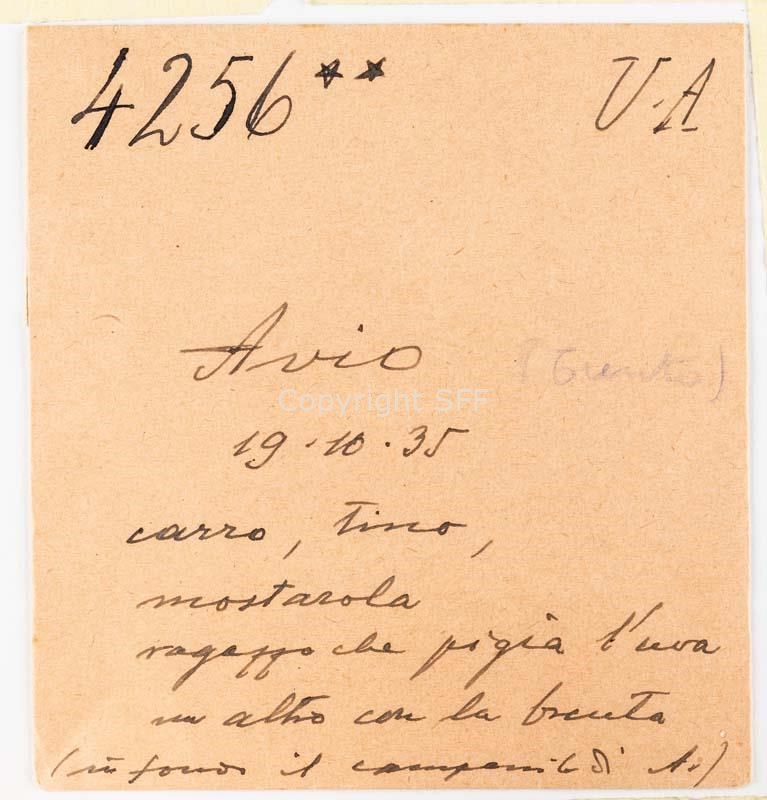 4256** V.A
Avio (Trento)
Copyright SFF
19.10.35
carro, tino,
mostarola
ragazzo che pigia l'uva
un altro con la brenta
(in fondo il campanile di Av)